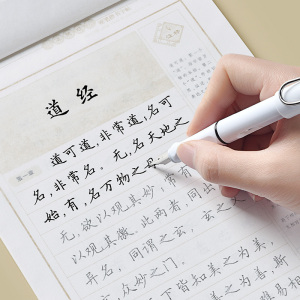 道经
第一章
道可道，非常道，名可
名，非常名。无，名天地之
始，有，名万物之母
无，欲以观其妙，常有
以观其徼，此两者，同出
异名，同谓之玄，玄之又
玄，众妙之门。
下皆知美之为美，
善之为善，斯
难易相